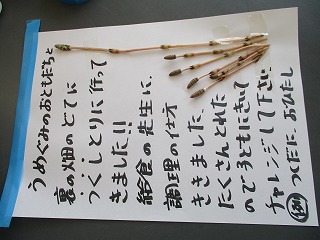 うめぐみのおともだちと
裏の畑のどてに
つくしとりに行って
きました!!
給食の先生に、
調理の仕方
ききました。
たくさんとれた
ので子どもにきいて
チャレンジして下さい
例 つくだに、おひたし